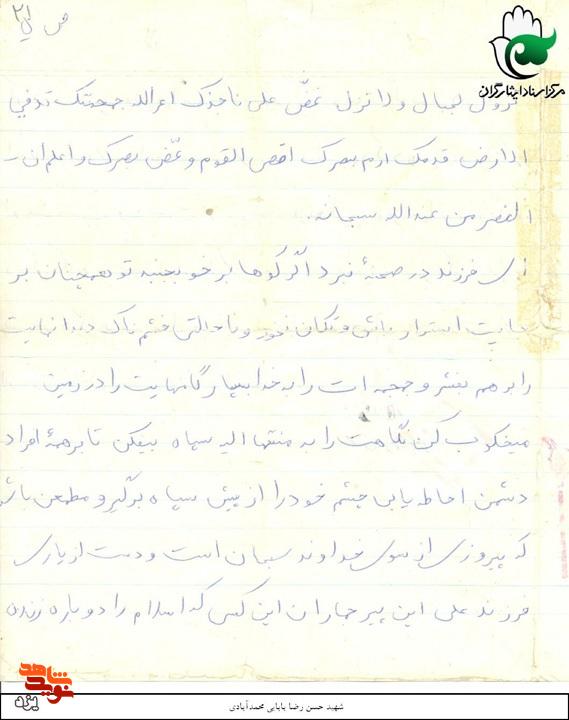 ص ۲۱
مرکز اسناد ایثارگران
تزول الجبال و لا تزل عَضّ علی ناجذک اعرالله جمجمتک تد فی
الارض قدمک ارم ببصرک اقصی القوم و غُض بصرک و اعلم ان
النصر من عند الله سبحانه.
ای فرزند در صحنهٔ نبرد اگر کوها بر خود بجنبد تو همچنان بر
جایت استوار باش و تکان نخور و با حالتی خشم ناک دندانهایت
را بر هم بفشر و جمجمه ات را به خدا بسپار گامهایت را در زمین
میخکوب کن نگاهت را به منتها الیه سپاه بیفکن تا بر همهٔ افراد
دشمن احاطه یابی چشم خود را از پیش سپاه برگیر و مطمعن باش
که پیروزی از سوی خداوند سبحان است و دست از یاری
فرزند علی این پیر جماران این کسی که اسلام را دوباره زنده
نوید شاهد
یزد
شهید حسن رضا بابایی محمدآبادی